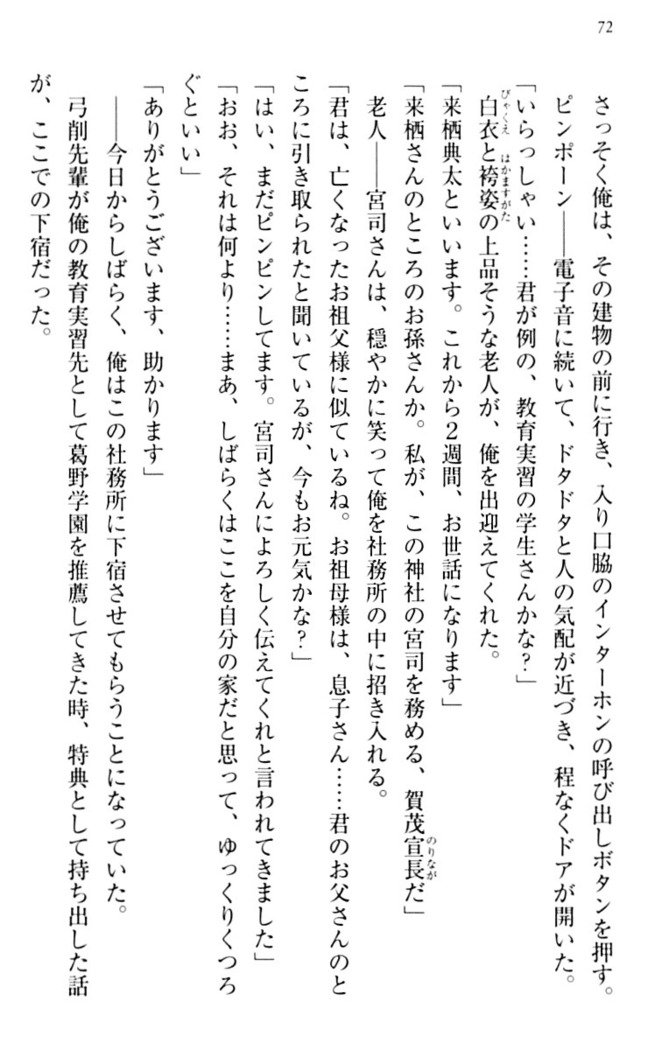 72
さっそく俺は、その建物の前に行き、入り口脇のインターホンの呼び出しボタンを押す。
ピンポーン――電子音に続いて、ドタドタと人の気配が近づき、程なくドアが開いた。
「いらっしゃい……君が例の、教育実習の学生さんかな？」
白衣と袴姿の上品そうな老人が、俺を出迎えてくれた。
びゃくえ はかますがた
「来栖典太といいます。これから２週間、お世話になります」
「来栖さんのところのお孫さんか。私が、この神社の宮司を務める、賀茂宣長だ」
のりなが
老人――宮司さんは、穏やかに笑って俺を社務所の中に招き入れる。
「君は、亡くなったお祖父様に似ているね。お祖母様は、息子さん……君のお父さんのと
ころに引き取られたと聞いているが、今もお元気かな？」
「はい、まだピンピンしてます。宮司さんによろしく伝えてくれと言われてきました」
「おお、それは何より……まあ、しばらくはここを自分の家だと思って、ゆっくりくつろ
ぐといい」
「ありがとうございます、助かります」
――今日からしばらく、俺はこの社務所に下宿させてもらうことになっていた。
弓削先輩が俺の教育実習先として葛野学園を推薦してきた時、特典として持ち出した話
が、ここでの下宿だった。